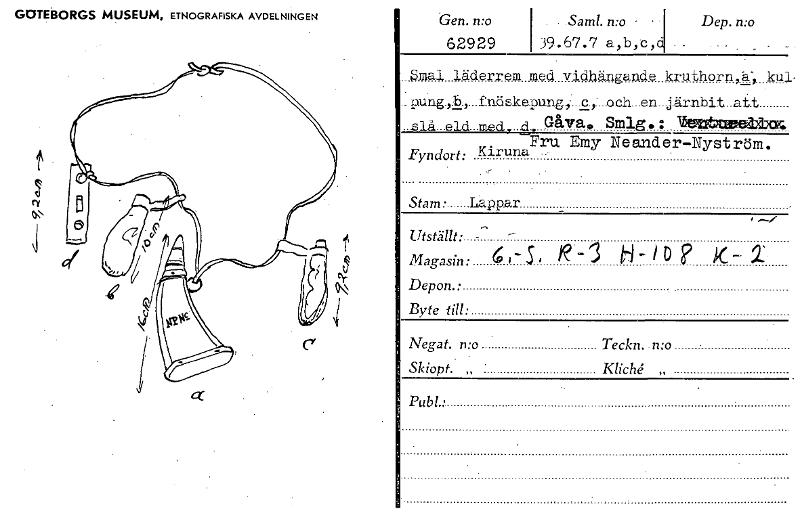 GÖTEBORGS MUSEUM, ETNOGRAFISKA AVDELNINGEN
9,2cm
d
10cm
b
16cm
NPNS
a
9,2cm
c
Gen. n:o Saml. n:o Dep. n:o
62929 39.67.7 a,b,c,d
Smal läderrem med vidhängande kruthorn,a, kul-
pung,b, fnöskepung, c, och en järnbit att
slå eld med, d. Gåva. Smlg.:
Fru Emy Neander-Nyström.
Fyndort: Kiruna
Stam: Lappar
Utställt:
Magasin: 6.-S. R-3 H-108 K-2
Depon.:
Byte till:
Negat. n:o Teckn. n:o
Skiopt. „ Kliché „
Publ.: